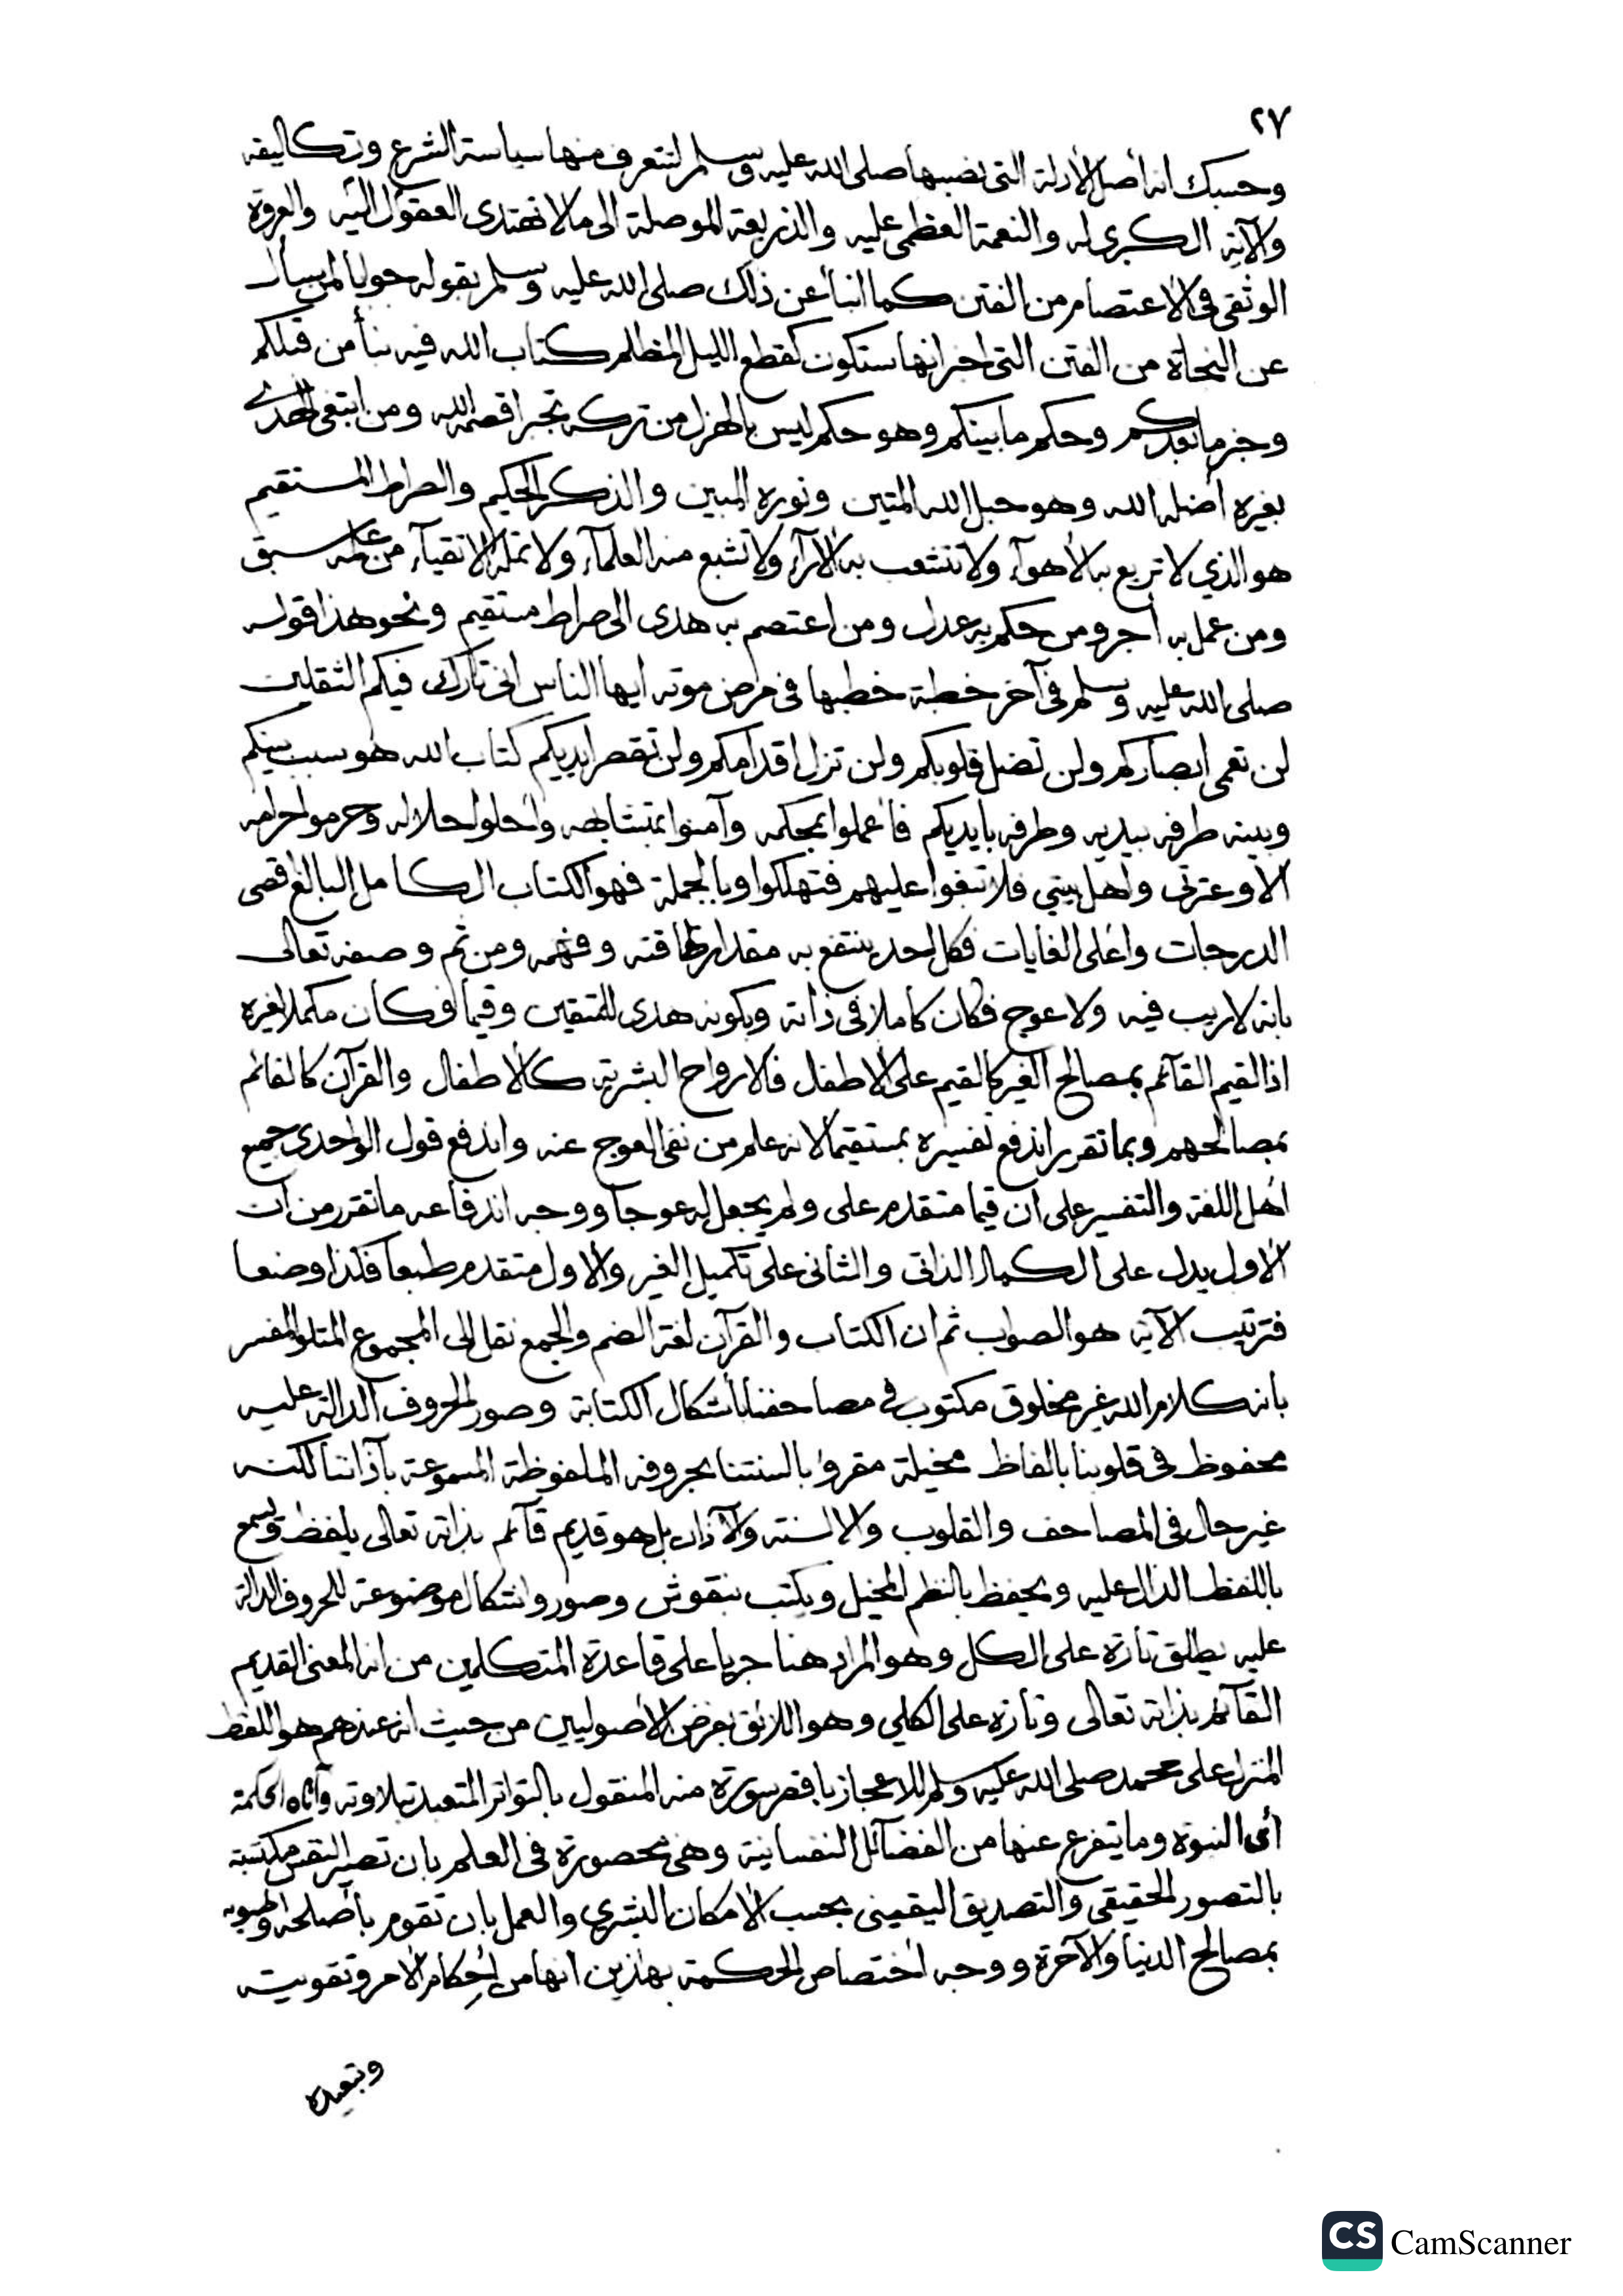 ٢٧
وحسبك انه أصل الأدلة التى نصبها صلى الله عليه وسلم لتتعرف منها سياسة الشرع وتكاليفه
والآية الكبرى له والنعمة العظمى عليه والذريعة الموصلة الى مالا تهتدى العقول اليه والعروة
الوثقى فى الاعتصام من الفتن كما انبأ عن ذلك صلى الله عليه وسلم بقوله جوابا لمن سأل
عن النجاة من الفتن التى اخبر انها ستكون كقطع الليل المظلم كتاب الله فيه نبأ من قبلكم
وخبر ما بعدكم وحكم ما بينكم وهو حكم ليس بالهزل من تركه تجبرا قصمه الله ومن ابتغى الهدى
بغيره أضله الله وهو حبل الله المتين ونوره المبين والذكر الحكيم والصراط المستقيم
هو الذي لا تريع به الأهوآء ولا تتشعب به الآرآء ولا تشبع منه العلمآء ولا تمله الاتقيآء من علمه سبق
ومن عمل به أجر ومن حكم به عدل ومن اعتصم به هدى الى صراط مستقيم ونحو هذا قوله
صلى الله عليه وسلم فى آخر خطبة خطبها فى مرض موته ايها الناس انى تارك فيكم الثقلين
لن تعمى ابصاركم ولن تضل قلوبكم ولن تزل اقدامكم ولن تقصر ايديكم كتاب الله هو سبب بينكم
وبينه طرفه بيديه وطرفه بايديكم فأعملوا بمحكمه وآمنوا بمتشابهه وأحلوا حلاله وحرموا حرامه
الا وعترتى وأهل بيتي فلا تبغوا عليهم فتهلكوا وبالجملة فهو الكتاب الكامل البالغ اقصى
الدرجات وأعلى الغايات فكل احد ينتفع به مقدار طاقته وفهمه ومن ثم وصفه تعالى
بانه لا ريب فيه ولا عوج فكان كاملا فى ذاته وبكونه هدى للمتقين وقيما فكان مكملا لغيره
اذ القيم القآئم بمصالح الغير كالقيم على الاطفل فالارواح البشرية كالأطفال والقرآن كالقائم
بمصالحهم وبما تقرر اندفع تفسيره بمستقيما لانه علم من نفى العوج عنه واندفع قول الواحدى جميع
أهل اللغة والتفسير على ان قيما متقدم على ولم يجعل له عوجا ووجه اندفاعه ما تقرر من ان
الأول يدل على الكمال الذاتى والثانى على تكميل الغير والاول متقدم طبعا فكذا وضعا
فترتيب الآية هو الصواب ثم ان الكتاب والقرآن لغة الضم والجمع نقل الى المجموع المتلو المفسر
بانه كلام الله غير مخلوق مكتوب فى مصاحفنا بأشكال الكتابة وصور الحروف الدالة عليه
محفوظ فى قلوبنا بالفاظ مخيلة مقروء بالسنتنا بحروفه الملفوظة المسموعة بآذاننا لكنه
غير حال فى المصاحف والقلوب والالسنة والآذان بل هو قديم قآئم بذاته تعالى يلفظ ويسمع
باللفظ الدال عليه ويحفظ بالنظم المخيل ويكتب بنقوش وصور واشكال موضوعة للحروف الدالة
عليه يطلق تارة على الكل وهو المراد هنا جريا على قاعدة المتكلمين من انه المعنى القديم
القآئم بذاته تعالى وتارة على الكلي وهو اللائق بغرض الأصوليين من حيث انه عندهم هو اللفظ
المنزل على محمد صلى الله عليه وسلم للاعجاز باقصر سورة منه المنقول بالتواتر المتعبد بتلاوته وآتاه الحكمة
أى النبوة وما يتفرع عنها من الفضآئل النفسانية وهى محصورة فى العلم بان تصير النفس مكتسبة
بالتصور الحقيقي والتصديق اليقينى بحسب الأمكان البشري والعمل بان تقوم بأصلحه
بمصالح الدنيا والآخرة ووجه أختصاص الحكمة بهاذين انها من إحكام الأمر وتقويته